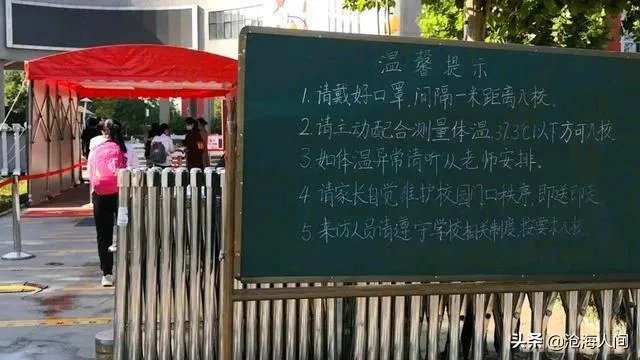 温馨提示
1. 请戴好口罩,间隔一米距离入校.
2. 请主动配合测量体温,37.3℃以下方可入校.
3. 如体温异常请听从老师安排.
4. 请家长自觉维护校园门口秩序,即送即走.
5. 来访人员请遵守学校相关制度,按要求入校.
头条@沧海人间